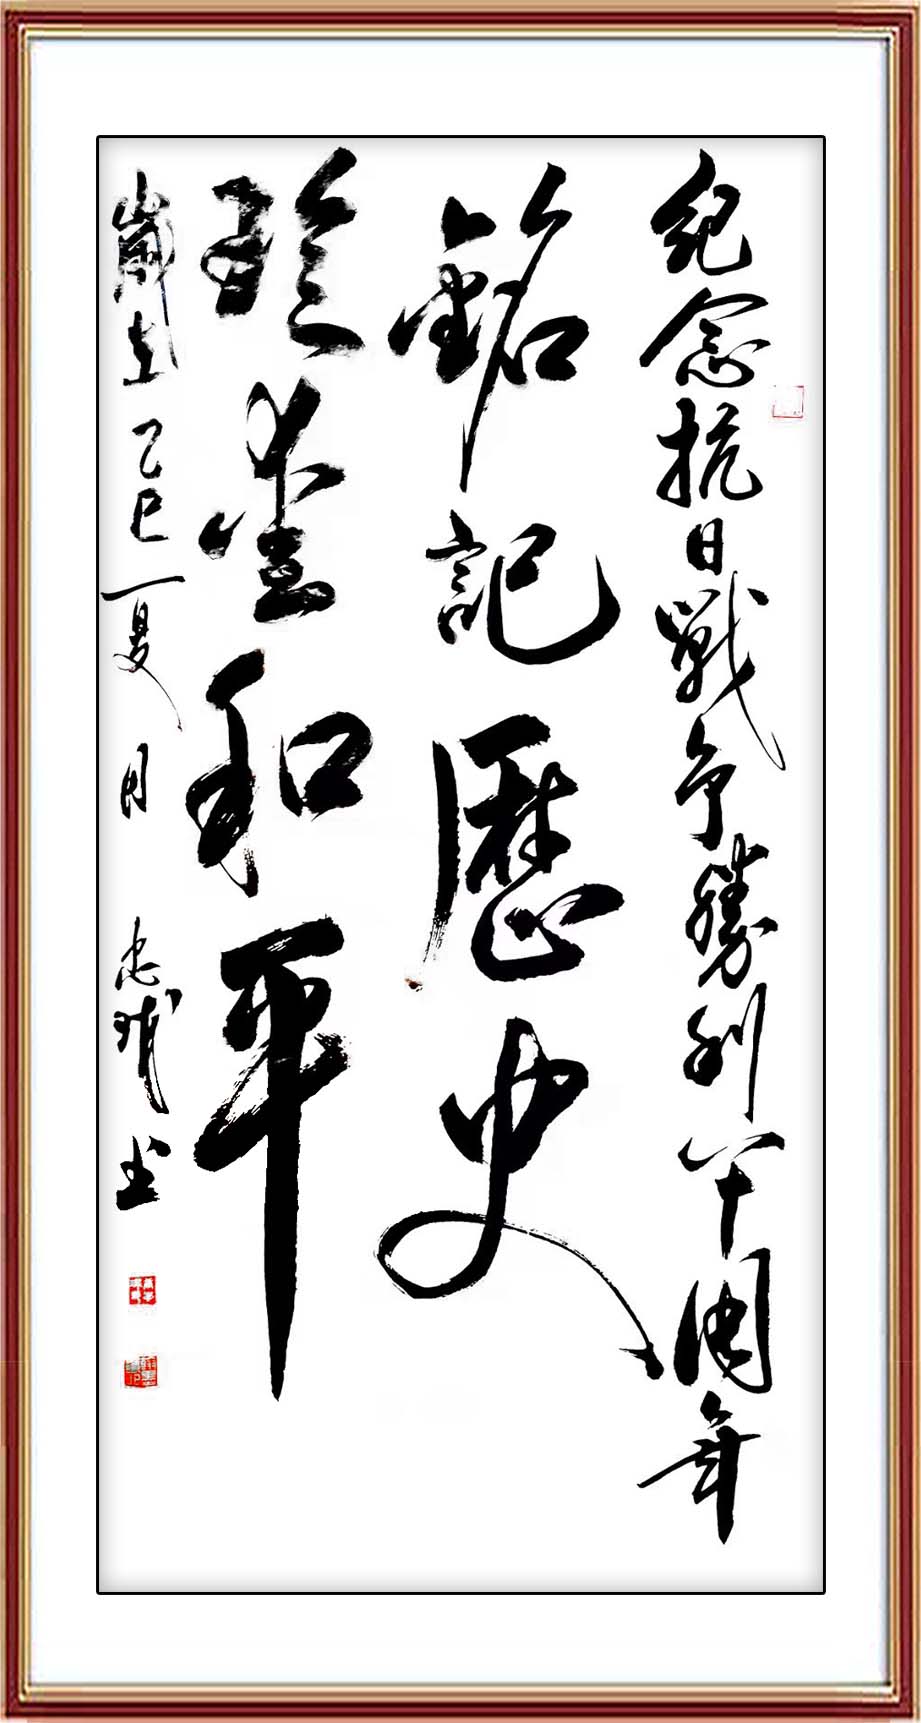 紀念抗日戰爭勝利八十周年
銘記歷史
珍愛和平
歲在乙巳夏月 忠書